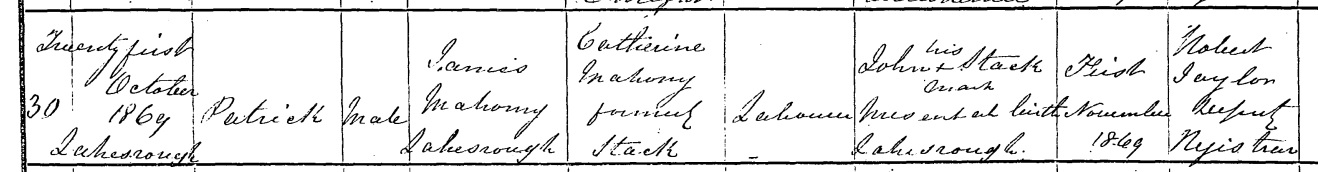 30
Twenty first
October
1869
Lahesrough
Patrick
Male
James
Mahony
Lahesrough
Catherine
Mahony
formerly
Stack
Labourer
his
John + Stack
mark
Present at birth
Lahesrough.
First
November
1869
Robert
Taylor
Deputy
Registrar